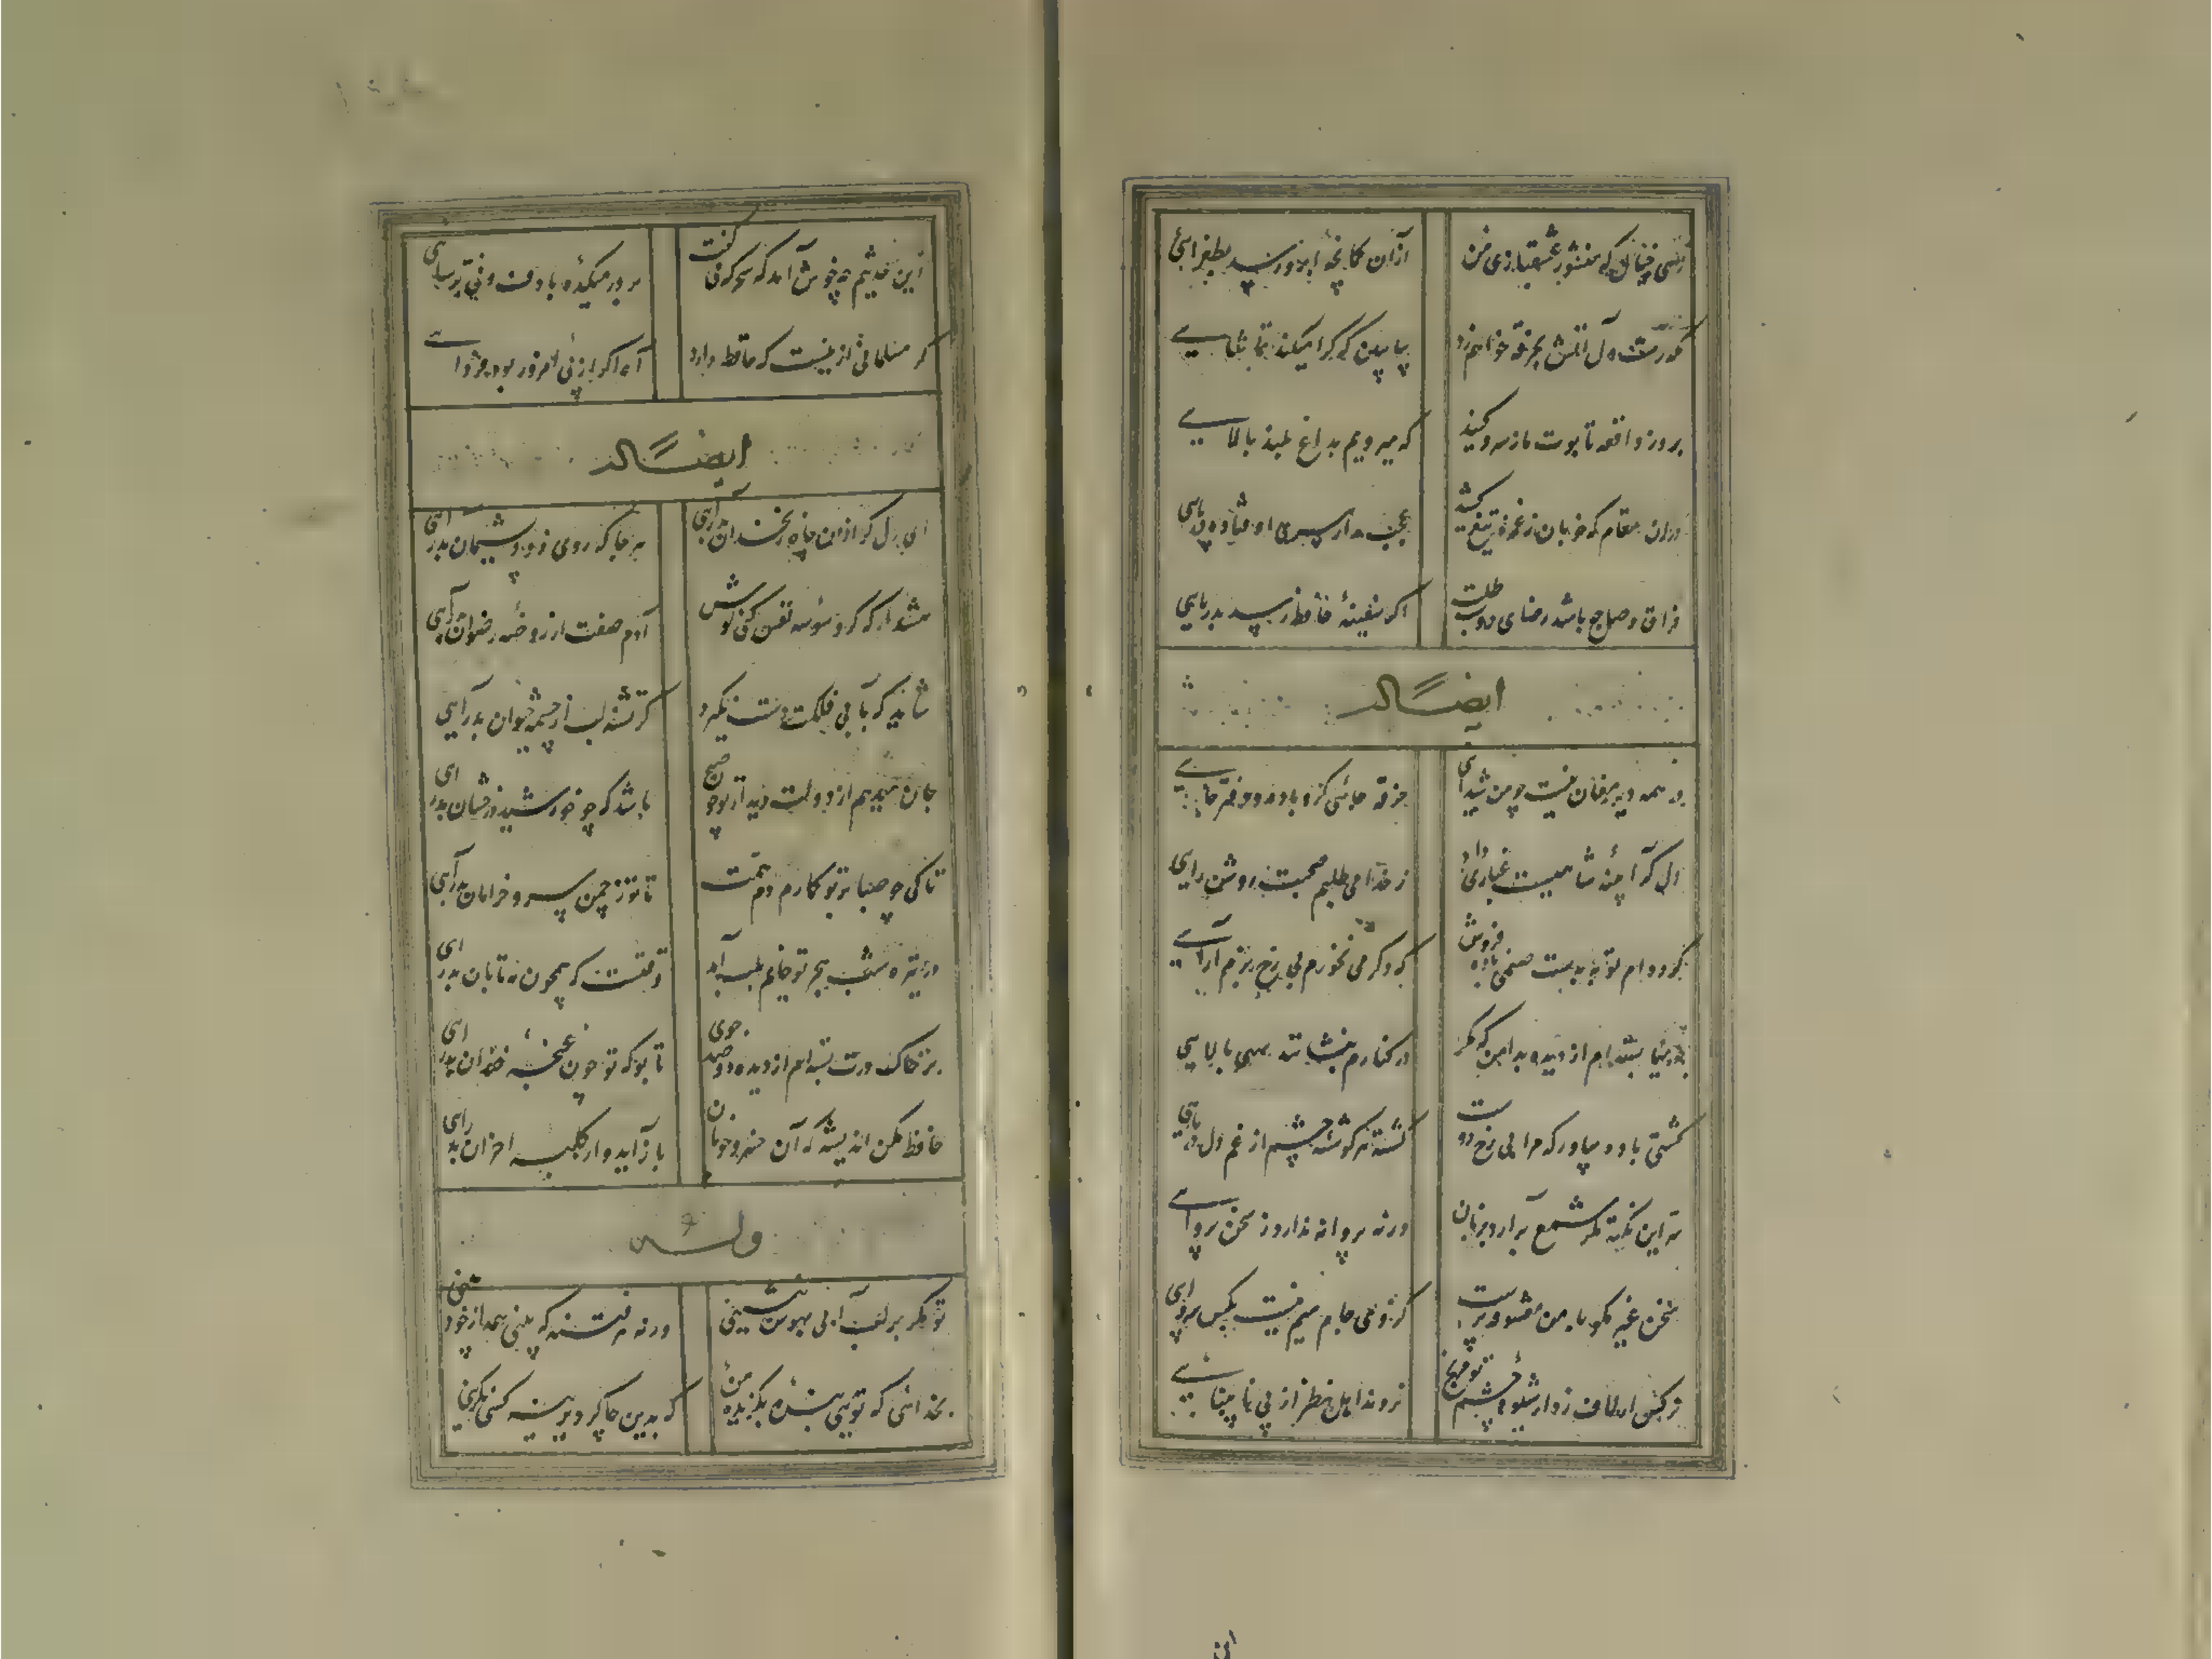 زهی خیال که منشور عشقبازی من ازان کمانچه ابرو رسد بطغرایی
مکدرست دل آتش بخرقه خواهم زد بیا ببین که کرا میکند تماشایی
بروز واقعه تابوت ما ز سرو کنید که میرویم بداغ بلند بالایی
دران مقام که خوبان ز غمزه تیغ کشند عجب مدار سری اوفتاده در پایی
فراق و وصل چه باشد رضای دوست طلب اگر سفینهٔ حافظ رسد بدریایی
ایضاً له
در همه دیر مغان نیست چو من شیدایی خرقه جائی گرو باده و دفتر جایی
دل که آئینه شاهیست غباری دارد از خدا می طلبم صحبت روشن رایی
کرده ام توبه بدست صنمی باده فروش که دگر می نخورم بی رخ بزم آرایی
جویها بسته ام از دیده بدامن که مگر در کنارم بنشانند سهی بالایی
کشتی باده بیاور که مرا بی رخ دوست گشته هر گوشهٔ چشم از غم دل دریایی
سر این نکته مگر شمع برآرد بزبان ورنه پروانه ندارد ز سخن پروایی
سخن غیر مگو با من معشوقه پرست کز وی و جام میم نیست بکس پروایی
نرگس ار لاف زد از شیوهٔ چشم تو مرنج نروند اهل نظر از پی نابینایی
این
این حدیثم چه خوش آمد که سحرگه میگفت بر در میکده با دف و نی ترسایی
گر مسلمانی ازینست که حافظ دارد آه اگر از پی امروز بود فردایی
ایضاً له
ای دل گر ازان چاه زنخدان بدرآیی هر جا که روی زود پشیمان بدرآیی
هشدار که گر وسوسه نفس کنی گوش آدم صفت از روضهٔ رضوان بدرآیی
شاید که بآبی فلکت دست نگیرد گر تشنه لب از چشمه حیوان بدرآیی
جان میدهم از دولت دیدار تو چون صبح باشد که چو خورشید درخشان بدرآیی
تا کی چو صبا بر تو گمارم دم همت تا تو ز چمن سرو خرامان بدرآیی
در تیره شب هجر تو جانم بلب آمد وقتست که همچون مه تابان بدرآیی
بر خاک درت بسته ام از دیده دو صد جوی تا بوکه تو چون غنچه خندان بدرآیی
حافظ مکن اندیشه که آن خسرو خوبان بازآید و از کلبه احزان بدرآیی
وله
تو مگر بر لب آبی بهوس ننشینی ورنه هر فتنه که بینی همه از خود بینی
بخدائی که تویی بندهٔ بگزیدهٔ او که بدین چاکر دیرینه کسی نگزینی